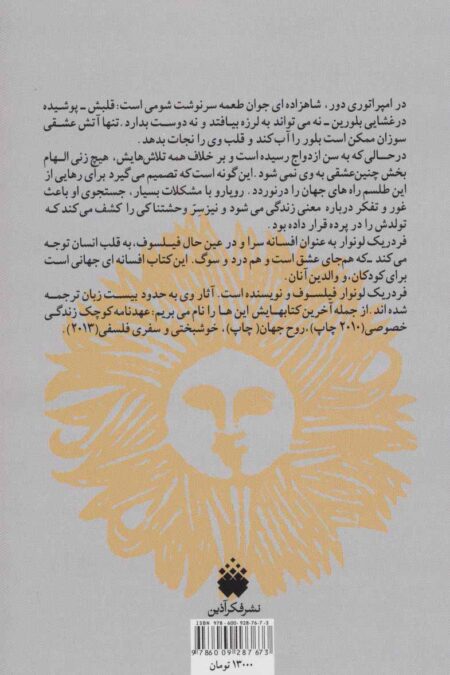 در امپراتوری دور، شاهزاده ای جوان طعمه سرنوشت شومی است: قلبش ـ پوشیده
درغشایی بلورین ـ نه می تواند به لرزه بیافتد و نه دوست بدارد. تنها آتش عشقی
سوزان ممکن است بلور را آب کند و قلب وی را نجات بدهد.
درحالی که به سن ازدواج رسیده است و بر خلاف همه تلاش‌هایش، هیچ زنی الهام
بخش چنین عشقی به وی نمی شود. این گونه است که تصمیم می گیرد برای رهایی از
این طلسم راه های جهان را درنوردد. رویارو با مشکلات بسیار، جستجوی او باعث
غور و تفکر درباره معنی زندگی می شود و نیز سرّ وحشتناکی را کشف می کند که
تولدش را در پرده قرار داده بود.
فردریک لونوار به عنوان افسانه سرا و در عین حال فیلسوف، به قلب انسان توجه
می کند ـ که هم جای عشق است و هم درد و سوگ. این کتاب افسانه ای جهانی است
برای کودکان، و والدین آنان.
فردریک لونوار فیلسوف و نویسنده است. آثار وی به حدود بیست زبان ترجمه
شده اند. از جمله آخرین کتابهایش این ها را نام می بریم: عهدنامه کوچک زندگی
خصوصی (۲۰۱۰ چاپ)، روح جهان( چاپ)، خوشبختی و سفری فلسفی (۲۰۱۳).
نشر فکر آذین
ISBN 978-600-928-76-7-3
9 786009 287673
۱۳۰۰۰ تومان